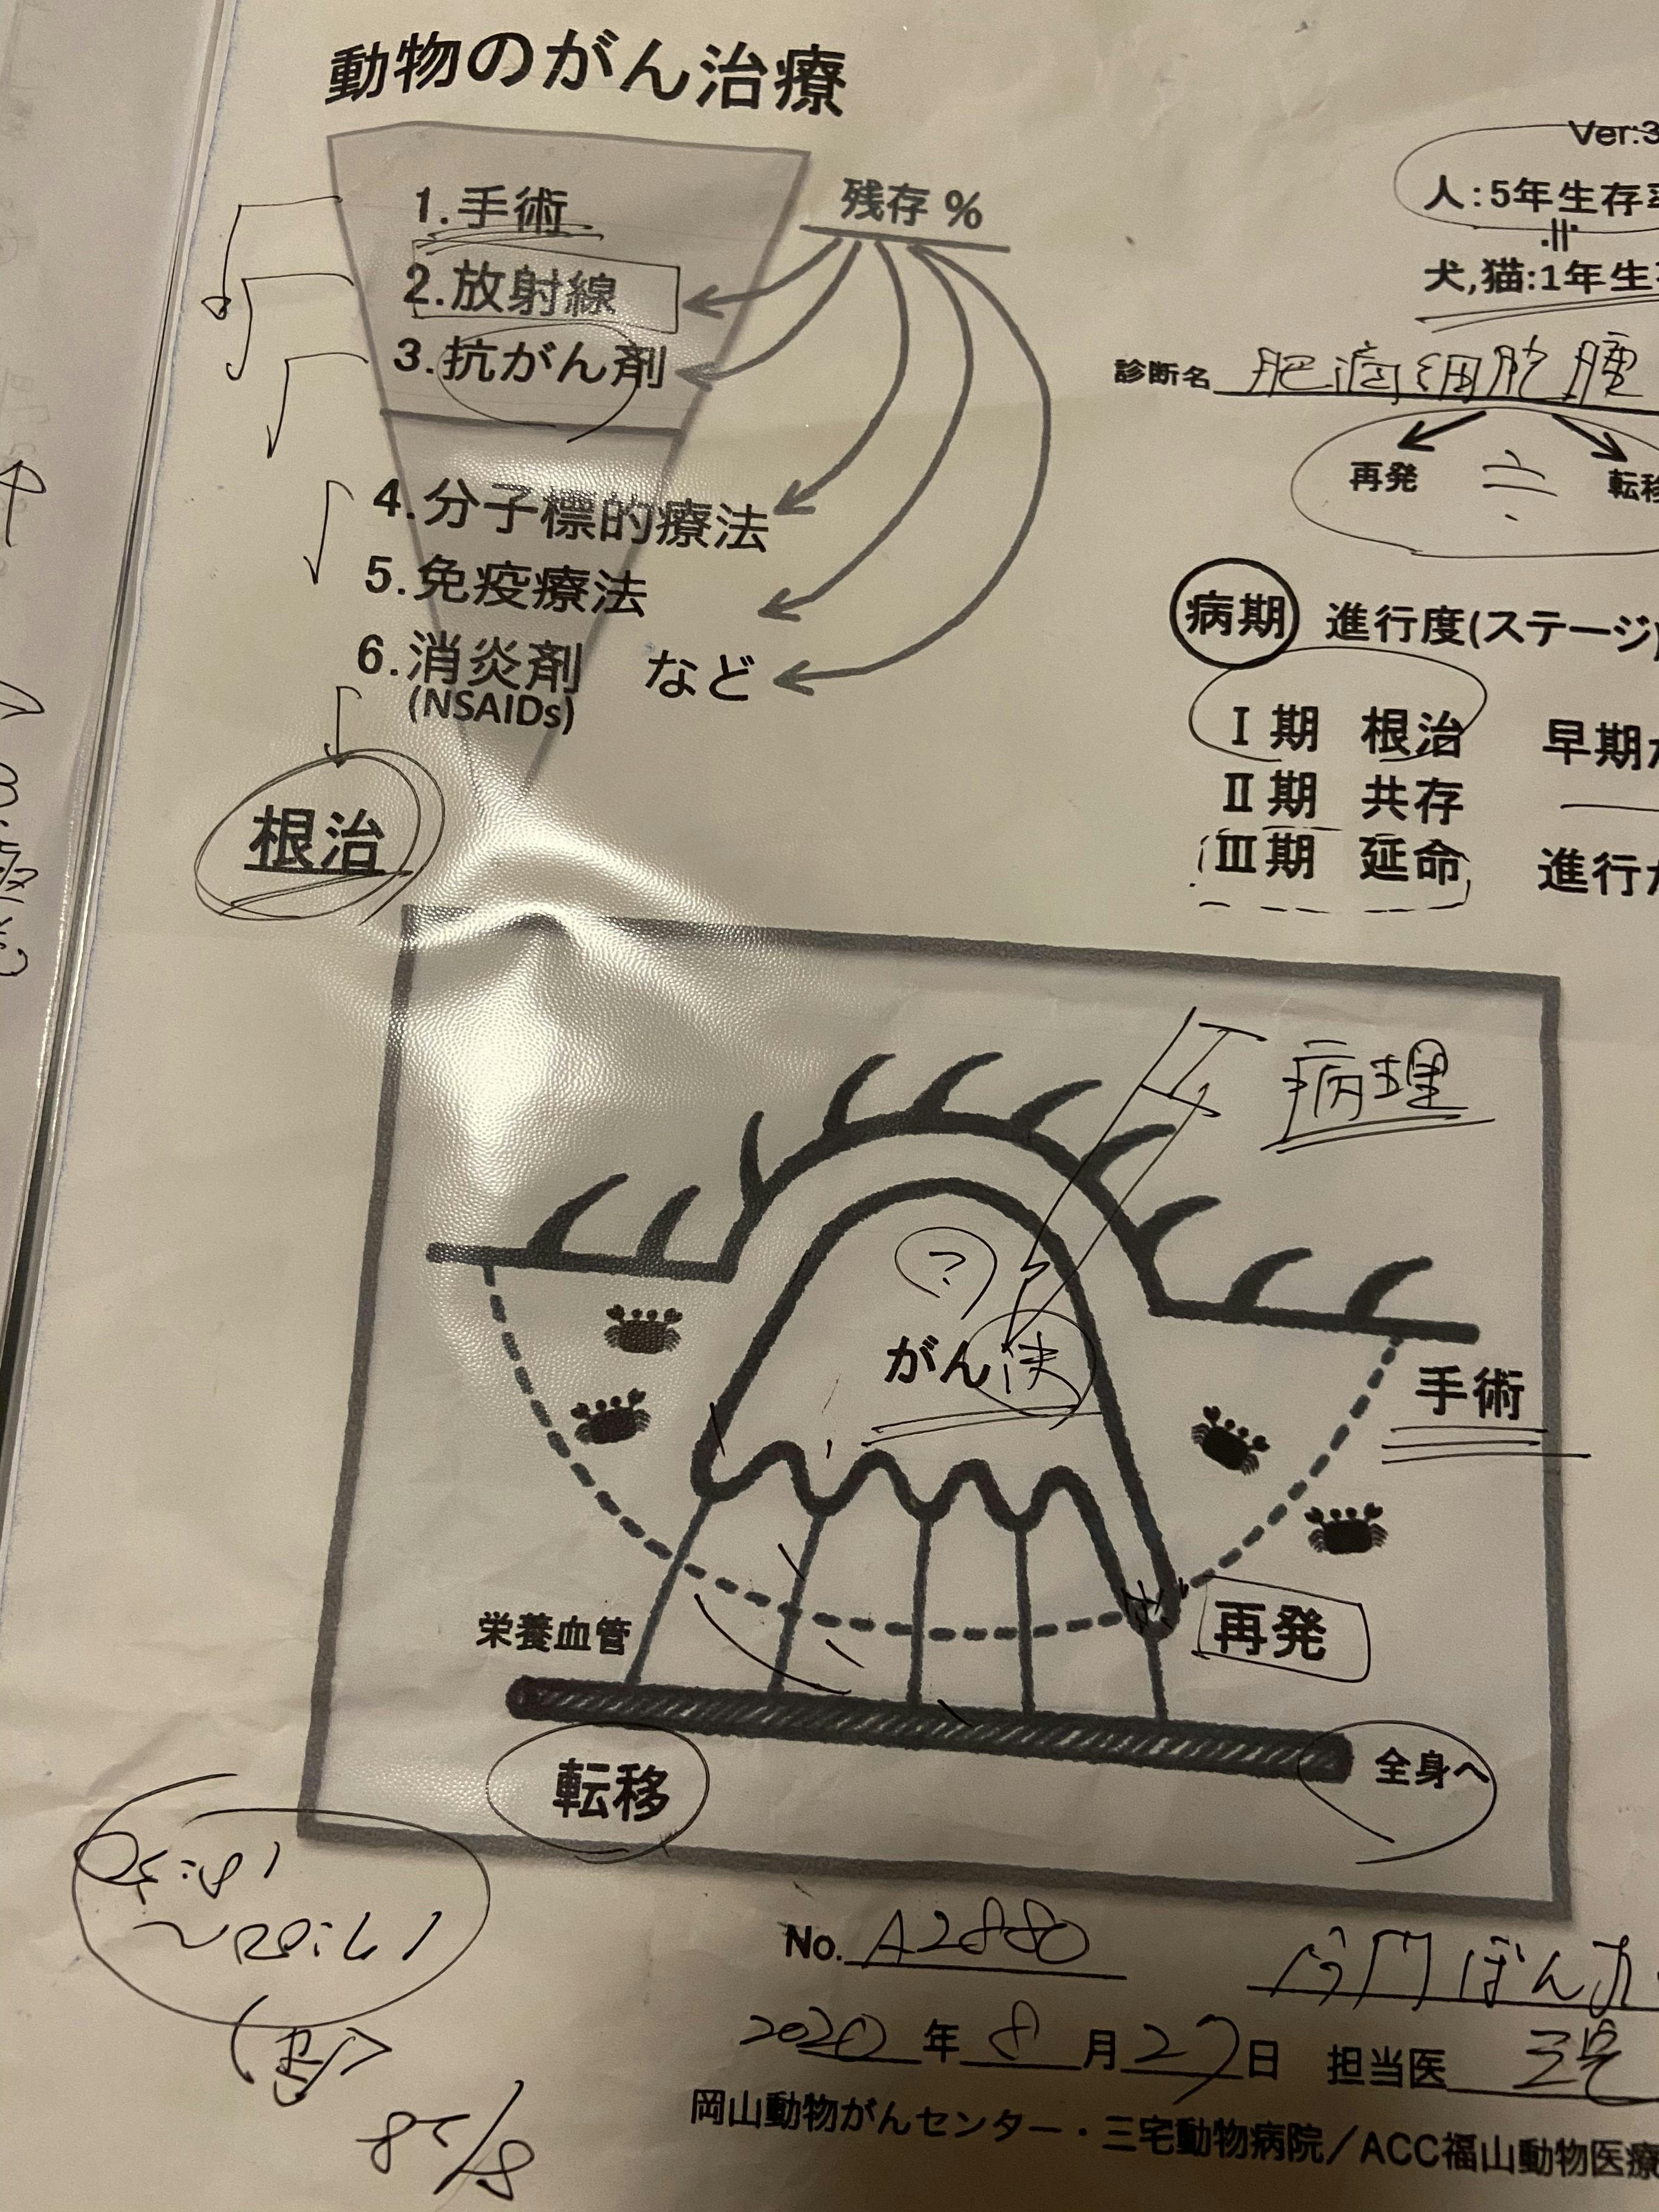 動物のがん治療
1.手術
2.放射線
3.抗がん剤
4.分子標的療法
5.免疫療法
6.消炎剤 など
(NSAIDs)
残存 %
根治
Ver:3
人:5年生存率
犬,猫:1年生存
診断名 肥満細胞腫
再発 転移
病期 進行度(ステージ)
Ⅰ期 根治 早期が
Ⅱ期 共存
Ⅲ期 延命 進行が
病理
?
がん
手術
再発
栄養血管
転移
全身へ
No. A2880
ぽん
2020年 8月27日 担当医 三宅
岡山動物がんセンター・三宅動物病院/ACC福山動物医療